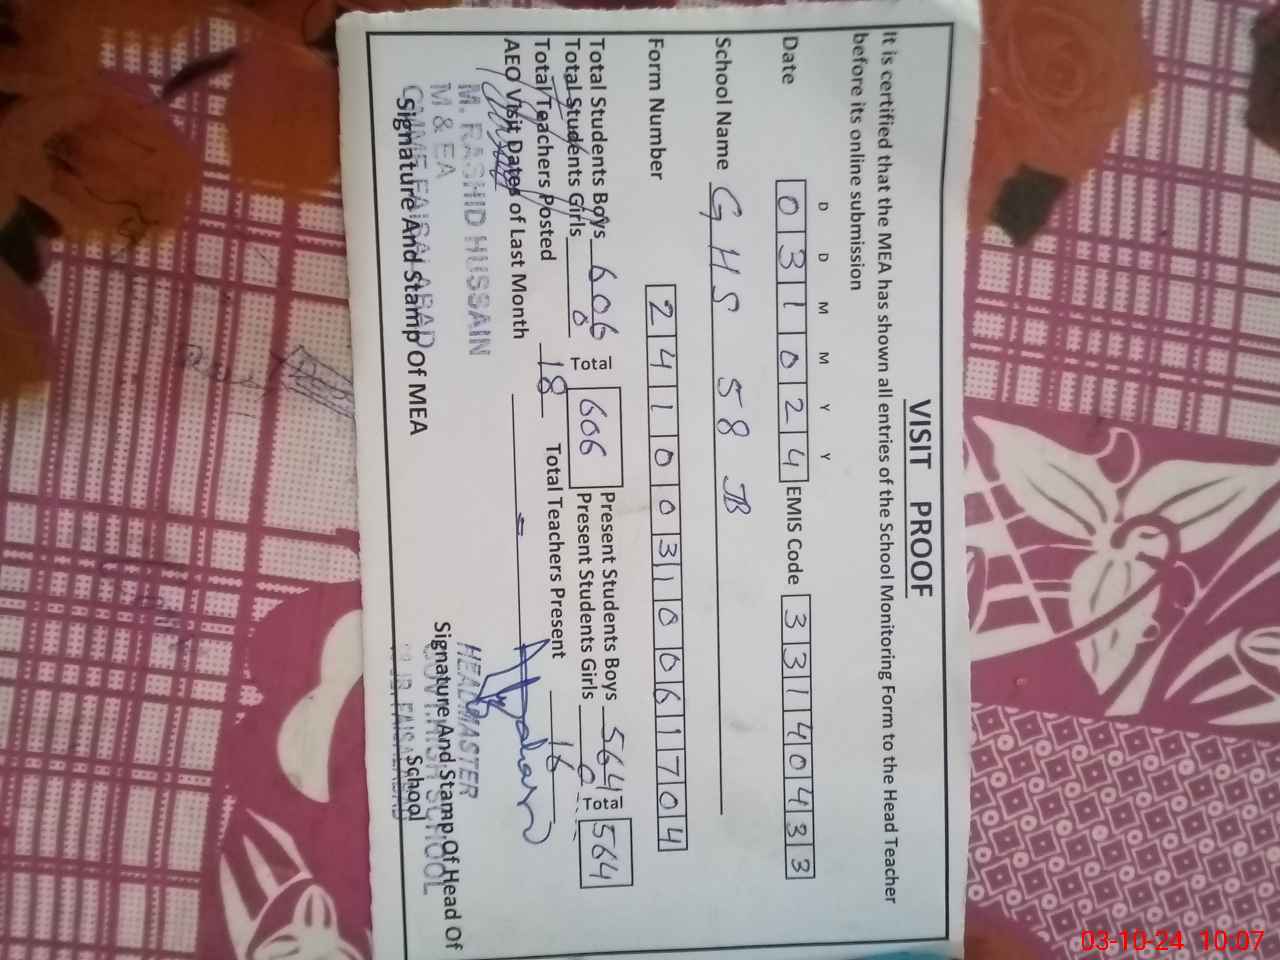 VISIT PROOF
It is certified that the MEA has shown all entries of the School Monitoring Form to the Head Teacher
before its online submission
D D M M Y Y
Date 0 3 1 0 2 4 EMIS Code 3 3 1 4 0 4 3 3
School Name GHS 58 JB
Form Number 2 4 1 0 0 3 1 0 0 6 1 7 0 4
Total Students Boys 606 Total 606 Present Students Boys 564 Total 564
Total Students Girls 0 Present Students Girls 0
Total Teachers Posted 18 Total Teachers Present 16
AEO Visit Dates of Last Month =
M. RASHID HUSSAIN
M & EA
FAISALABAD
Signature And Stamp Of MEA
HEADMASTER
GOVT. HIGH SCHOOL
JB, FAISALABAD
Signature And Stamp Of Head Of
School
03-10-24 10:07